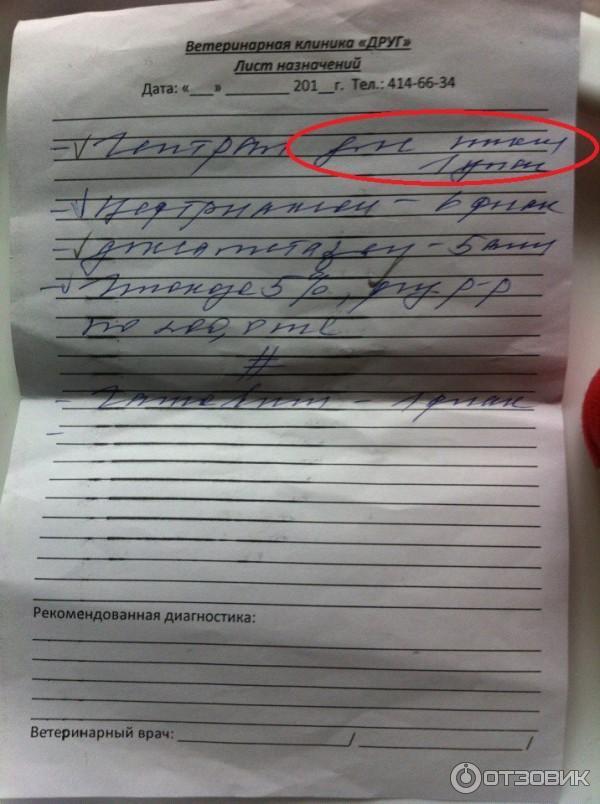 Ветеринарная клиника «ДРУГ»
Лист назначений
Дата: «___» _________ 201__г. Тел.: 414-66-34
- √ Гептрал для инъек
1 упак
- √ Цефтриаксон - 6 флак
- √ Дексаметазон - 5 амп
- √ Глюкоза 5%, р-р
по 200,0 мл
#
- Гамавит - 1 флак
-
Рекомендованная диагностика:
Ветеринарный врач: ____________________/ ________________/
ОТЗОВИК